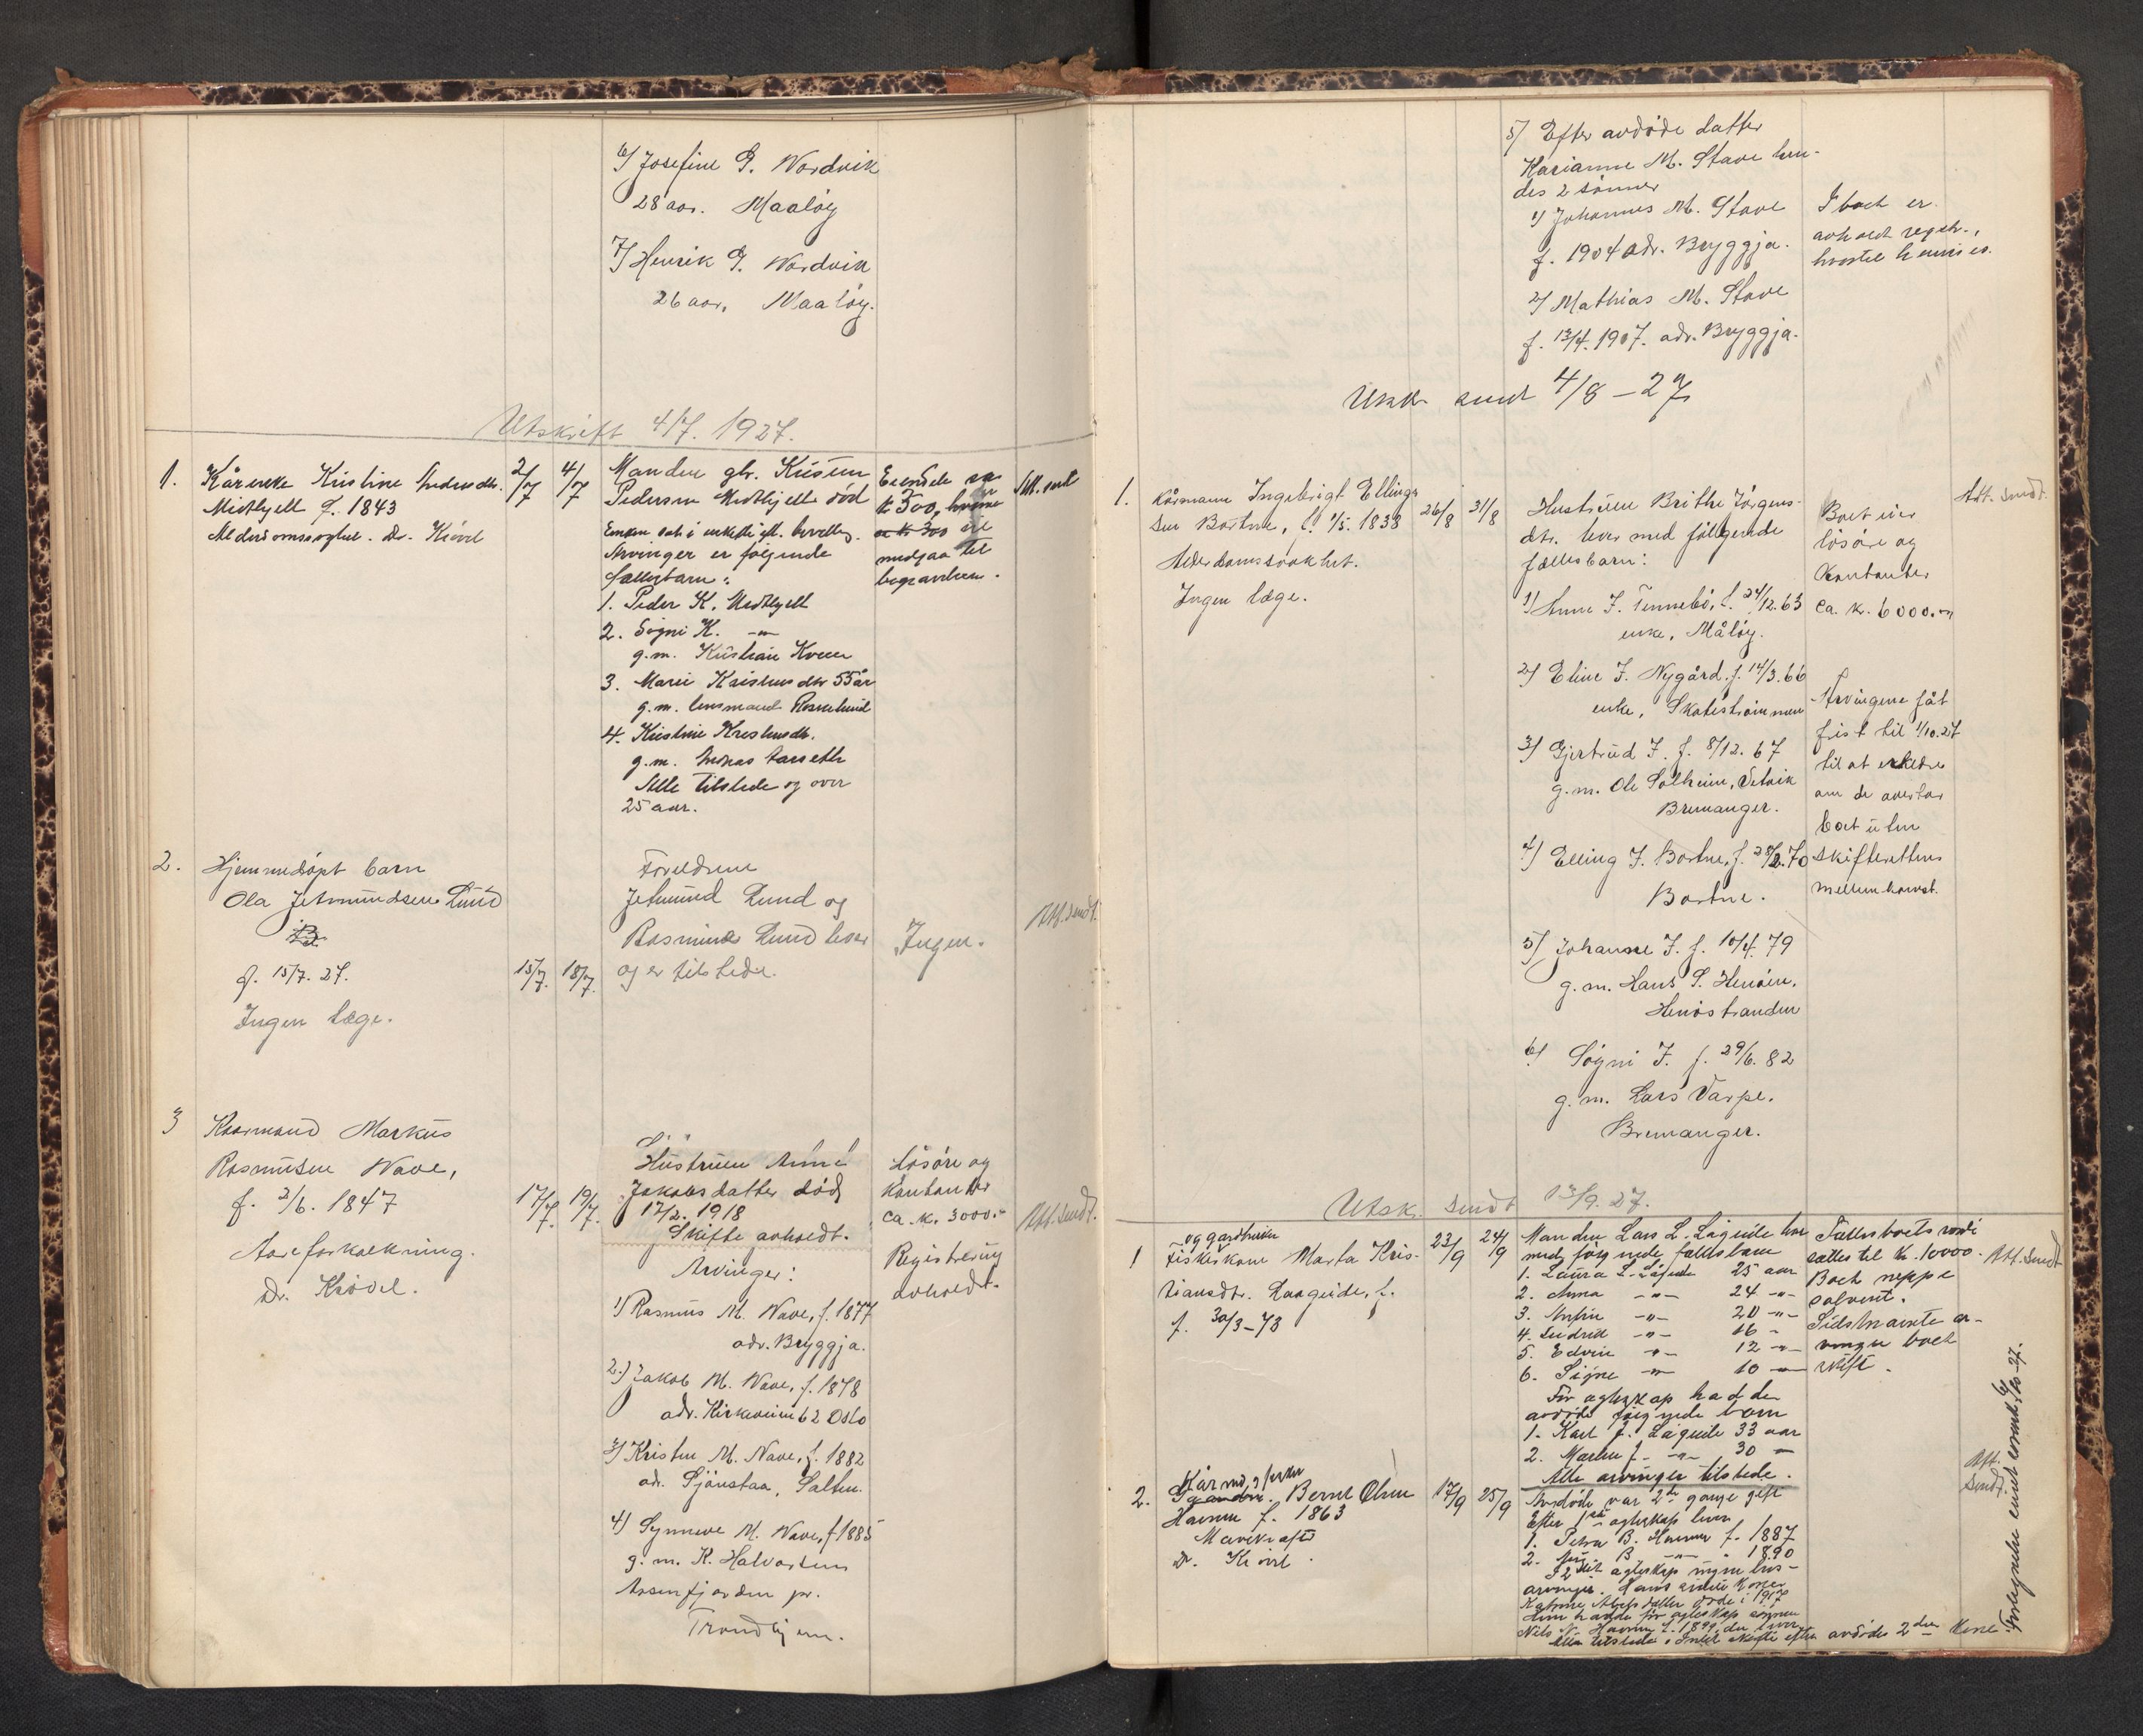 6) Josefine G. Nordvik
28 aar. Maaløy
7) Henrik G. Nordvik
26 aar, Maaløy.
Utskrift 4/7. 1927.
1. Kårenke Kristine
Midthjell f. 1843
Dr. Kiøvel
2/7 4/7
Manden gbr. Kristen
Pedersen Midthjell død
Arvinger er følgende
fællesbarn:
1. Peder K. Midthjell
2. Søgni K. -"-
g.m. Kristian
3. Marie Kristensdtr 55 år
g.m. lensmand
4. Kristine Kristensdtr.
g.m.
Alle tilstede og over
25 aar.
Eiendele
kr 500,
medgaa til
begravelsen.
Att. sendt
2. Hjemmedøpt barn
Ola Jetmundsen Lund
f. 15/7. 27.
Ingen læge.
15/7. 18/7.
Foreldrene
Jetmund Lund og
Rasmine Lund lever
og er tilstede.
Ingen.
Att. sendt.
3 Kaarmand Markus
Rasmussen Nave,
f. 2/6. 1847
Aareforkalkning.
Dr. Kiøvel.
17/7. 19/7.
Hustruen Anne
Jakobsdatter død
17/2. 1918
Skifte avholdt.
Arvinger:
1) Rasmus M. Nave, f. 1877
adr. Bryggja.
2) Jakob M. Nave, f. 1878
adr. Kirkeveien 62 Oslo
3) Kristen M. Nave, f. 1882
ad. Salten.
4) Synneve M. Nave, f 1885
g.m. K. Halvorsen
Aasenfjorden pr.
Trondhjem.
Løsøre og
kontanter
ca. kr. 3000.-
Registrering
avholdt.
Att. sendt.
5) Efter avdøde datter
Karianne M. Stave hen-
des 2 sønner
1) Johannes M. Stave
f. 1904 adr. Bryggja.
2) Mathias M. Stave
f. 13/4. 1907. adr. Bryggja.
I boet er
avholdt registr.,
hvortil henvises.
Utskr. sendt 4/8 - 27
1. Kårmann Ingebrigt Ellings-
sen Bortne, f. 1/5. 1838
Alderdomssvakhet.
Ingen læge.
26/8 31/8
Hustruen Brithe Jørgens-
dtr. lever med følgende
fællesbarn:
1) Anne I. Tennebø, f. 24/12. 63
enke, Måløy.
2) Eline I. Nygård, f. 14/3. 66
enke, Skatestrømmen
3) Gjertrud I. f. 8/12. 67
g.m. Ole Solheim,
Bremanger.
4) Elling I. Bortne, f. 28/2. 70
Bortne.
5) Johanne I. f. 10/4. 79
g.m. Hans S. Henøen,
Henøstranden
6) Søgni I. f. 29/6. 82
g.m. Lars Varpe.
Bremanger.
Boet eier
løsøre og
kontanter
ca. kr. 6000.-
Arvingene fåt
frist til 1/10.27
til at erklære
om de overtar
boet uten
skifterettens
mellemkomst.
Att. sendt.
Utsk. sendt 13/9. 27.
1 og gardbruker
fiskerkone Marta Kris-
tiansdtr. Laageide, f.
f. 30/3 - 73
23/9 24/9
Manden Lars L. Lågeide lever
med følgende fællesbarn
1. Laura L. Lågeide 25 aar
2. Anna -"- 24 -"-
3. -"- 20 -"-
4. -"- 16 -
5. Edvin -"- 12 -"-
6. Signe -"- 10 -"-
Før egteskap hadde
avdøde følgende barn
1. Karl J. Lågeide 33 aar
2. Marten J. -"- 30 -"-
Alle arvinger tilstede.
Fellesboets verdi
sættes til kr. 10000.-
Boet neppe
solvent.
Att. sendt
2. Kårmd. og fisker
Bernt Olsen
Havnen f. 1863
Dr. Kiøvel.
17/9 25/9
Avdøde var 2de gange gift
Efter 1ste egteskap lever
1. Petra B. Havnen f. 1887
2. B -"- " 1890
I 2det egteskap ingen livs-
arvinger. Hans sidste kone
døde i 1917
Hun hadde før egteskap sønnen
Nils N. Havnen f. 1899, der lever.
Alle tilstede. Intet skifte efter avdødes 2den kone.
Att.
sendt.